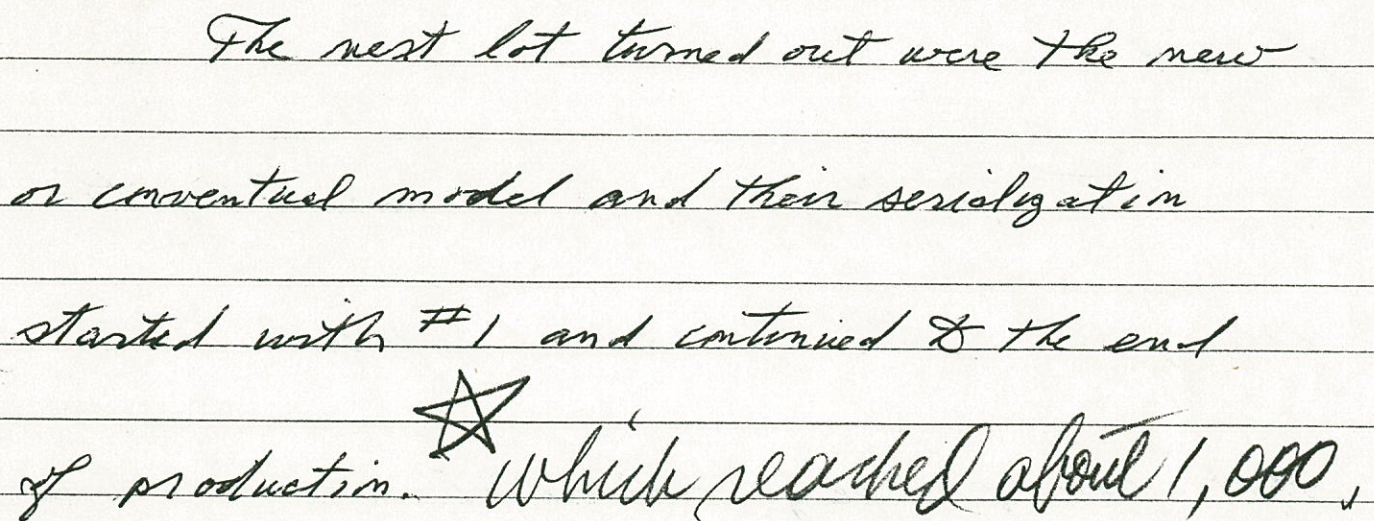 The next lot turned out were the new
or conventual model and their serialization
started with #1 and continued to the end
of production. ☆ which reached about 1,000.